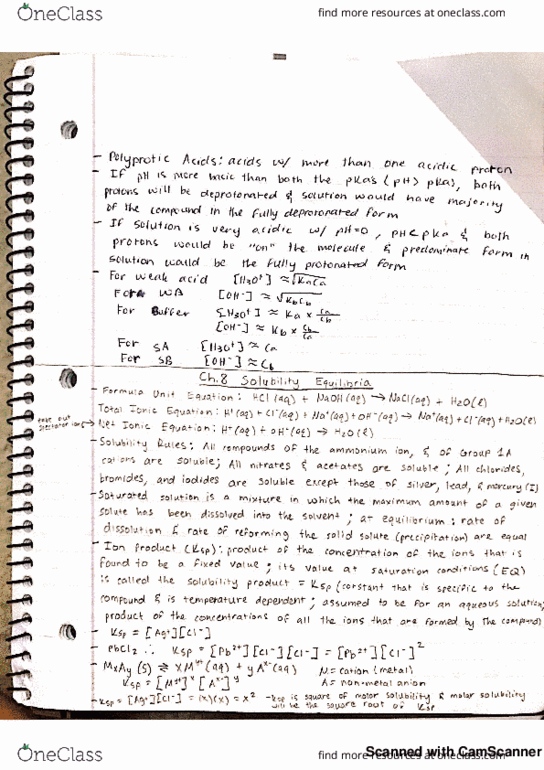 OneClass find more resources at oneclass.com
- Polyprotic Acids: acids w/ more than one acidic proton
If pH is more basic than both the pKa's (pH > pKa), both
protons will be deprotonated & solution would have majority
of the compound in the fully deprotonated form
- If solution is very acidic w/ pH=0, pH<pKa & both
protons would be "on" the molecule & predominate form in
solution would be the fully protonated form
- For weak acid [H₃O⁺] ≈ √KaCa
For WB [OH⁻] ≈ √KbCb
For Buffer [H₃O⁺] ≈ Ka × Ca/Cb
[OH⁻] ≈ Kb × Cb/Ca
For SA [H₃O⁺] ≈ Ca
For SB [OH⁻] ≈ Cb
Ch.8 Solubility Equilibria
- Formula Unit Equation: HCl(aq) + NaOH(aq) → NaCl(aq) + H₂O(ℓ)
Total Ionic Equation: H⁺(aq) + Cl⁻(aq) + Na⁺(aq) + OH⁻(aq) → Na⁺(aq) + Cl⁻(aq) + H₂O(ℓ)
out spectator ions → Net Ionic Equation: H⁺(aq) + OH⁻(aq) → H₂O(ℓ)
- Solubility Rules: All compounds of the ammonium ion, & of Group 1A
cations are soluble; All nitrates & acetates are soluble; All chlorides,
bromides, and iodides are soluble except those of silver, lead, & mercury (I)
- Saturated solution is a mixture in which the maximum amount of a given
solute has been dissolved into the solvent; at equilibrium: rate of
dissolution & rate of reforming the solid solute (precipitation) are equal
- Ion Product (Ksp): product of the concentration of the ions that is
found to be a fixed value; its value at saturation conditions (EQ)
is called the solubility product = Ksp (constant that is specific to the
compound & is temperature dependent; assumed to be for an aqueous solution;
product of the concentrations of all the ions that are formed by the compound)
- Ksp = [Ag⁺][Cl⁻]
- PbCl₂ ∴ Ksp = [Pb²⁺][Cl⁻][Cl⁻] = [Pb²⁺][Cl⁻]²
- MxAy (s) ⇌ xM (aq) + yA (aq) M = cation (metal)
Ksp = [M]ˣ[A]ʸ A = non-metal anion
- Ksp = [Ag⁺][Cl⁻] = (x)(x) = x² - Ksp is square of molar solubility & molar solubility
will be the square root of Ksp
Scanned with CamScanner
OneClass find more resources at oneclass.com